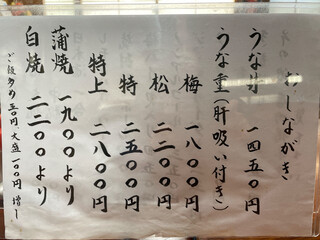 おしながき
うな丼 一四五〇円
うな重(肝吸い付き)
梅 一八〇〇円
松 二二〇〇円
特 二五〇〇円
特上 二八〇〇円
蒲焼 一九〇〇より
白焼 二二〇〇より
ご飯多め五〇円 大盛一〇〇円 増し